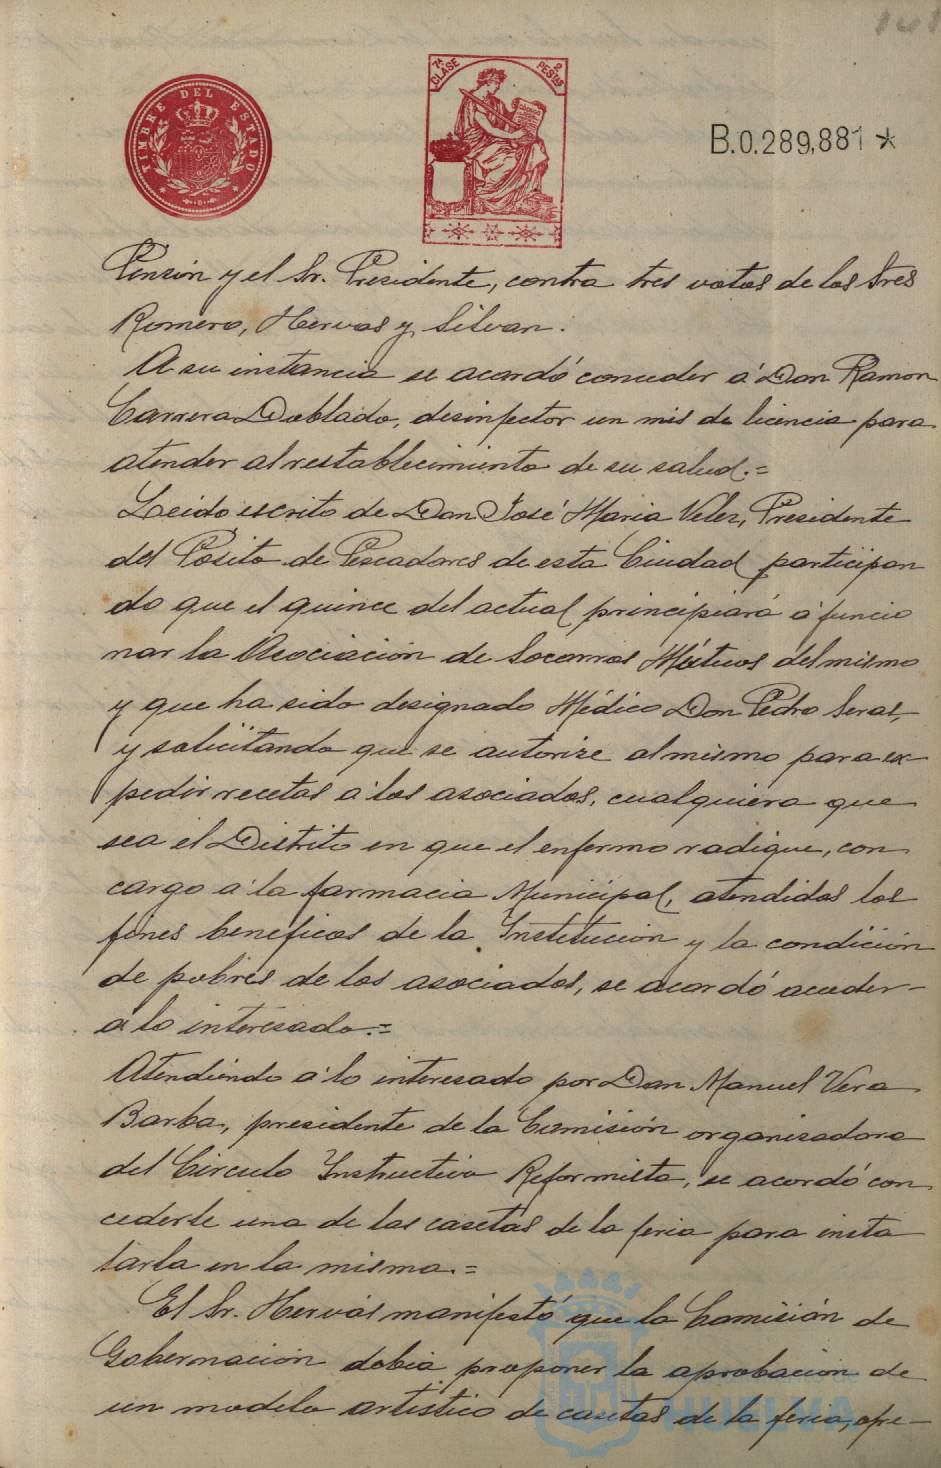 141
TIMBRE DEL ESTADO
7ª CLASE
2 PESTAS
B.0.289,881 *
Pinzón y el Sr. Presidente, contra tres votos de los Sres
Romero, Hervas y Silvan.
A su instancia se acordó conceder á Don Ramon
Carrera Doblado, desinfector un mes de licencia para
atender al restablecimiento de su salud.=
Leido escrito de Don José Maria Velez, Presidente
del Pósito de Pescadores de esta Ciudad participan
do que el quince del actual principiará á funcio
nar la Asociación de Socorros Mútuos del mismo
y que ha sido designado Médico Don Pedro Seras,
y solicitando que se autorize al mismo para ex-
pedir recetas a los asociados, cualquiera que
sea el Distrito en que el enfermo radique, con
cargo á la farmacia Municipal, atendidos los
fines beneficos de la Institución y la condición
de pobres de los asociados, se acordó acceder-
a lo interesado.=
Atendiendo á lo interesado por Don Manuel Vera
Barba, presidente de la Comisión organisadora
del Circulo Instructivo Reformista, se acordó con
cederle una de las casetas de la feria para insta
larla en la misma.=
El Sr. Hervás manifestó que la Comisión de
Gobernación debia proponer la aprobacion de
un modelo artístico de casetas de la feria, ofre-
HUELVA